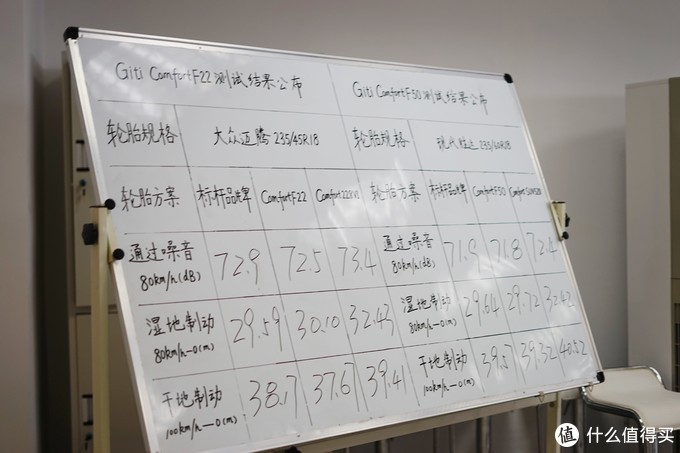 Giti ComfortF22测试结果公布 Giti ComfortF50测试结果公布
轮胎规格 大众迈腾 235/45R18 轮胎规格 现代胜达 235/60R18
轮胎方案 标杆品牌 ComfortF22 Comfort228V1 轮胎方案 标杆品牌 ComfortF50
通过噪音 72.9 72.5 73.4 通过噪音 71.9 71.8 72.4
80km/h(dB) 80km/h(dB)
湿地制动 29.59 30.10 32.43 湿地制动 29.64 29.72 32.42
80km/h-0(m) 80km/h-0(m)
干地制动 38.17 37.6 39.41 干地制动 39.57 39.32 40.52
100km/h-0(m) 100km/h-0(m)
值 什么值得买